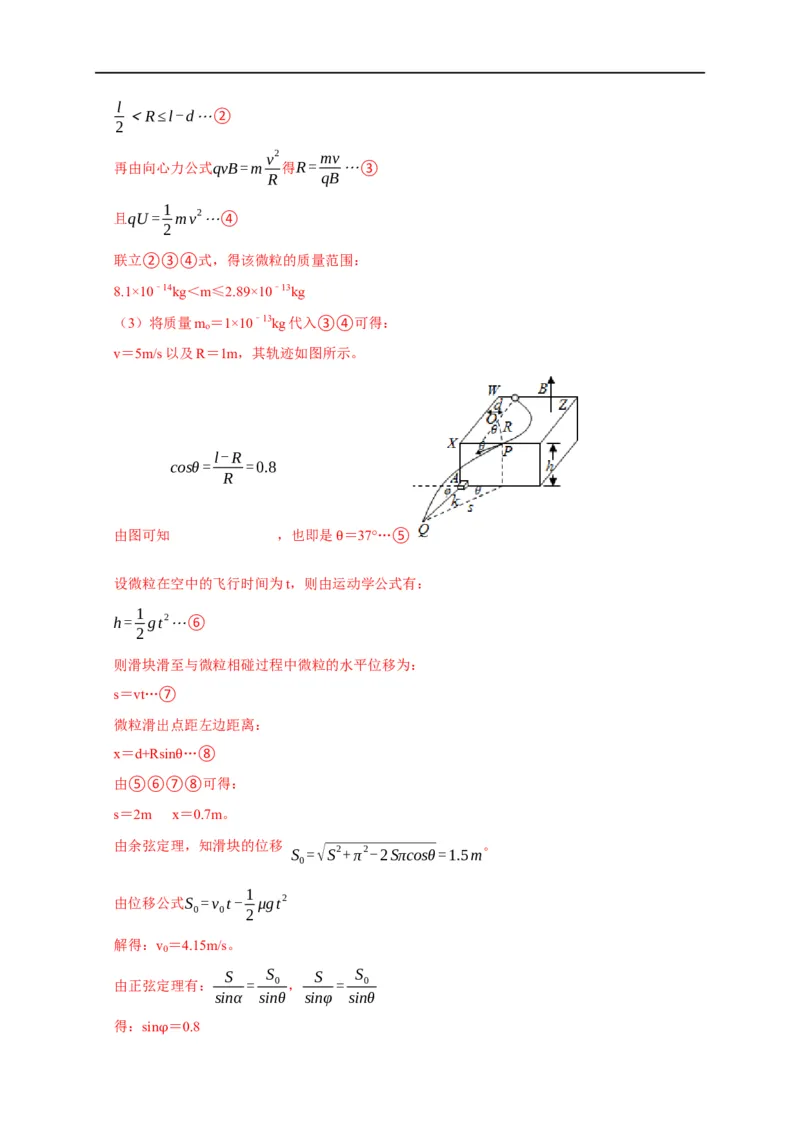 l/2 < R ≤ l − d ⋯②
再由向心力公式qvB = m v²/R 得R = mv/qB ⋯③
且qU = 1/2 mv² ⋯④
联立②③④式，得该微粒的质量范围：
8.1×10⁻¹⁴kg＜m≤2.89×10⁻¹³kg
（3）将质量m₀＝1×10⁻¹³kg代入③④可得：
v＝5m/s 以及R＝1m，其轨迹如图所示。
W B
d Z
O
θ R
X θ P
A h
φ θ
k s
Q
cosθ = (l−R)/R = 0.8
由图可知 ，也即是 θ＝37°⋯⑤
设微粒在空中的飞行时间为t，则由运动学公式有：
h = 1/2 gt² ⋯⑥
则滑块滑至与微粒相碰过程中微粒的水平位移为：
s＝vt⋯⑦
微粒滑出点距左边距离：
x＝d+Rsinθ⋯⑧
由⑤⑥⑦⑧可得：
s＝2m x＝0.7m。
由余弦定理，知滑块的位移 S₀ = √(S² + π² − 2Sπcosθ) = 1.5m 。
由位移公式S₀ = v₀t − 1/2 μgt²
解得：v₀＝4.15m/s。
由正弦定理有： S/sinα = S₀/sinθ ， S/sinφ = S₀/sinθ
得：sinφ＝0.8